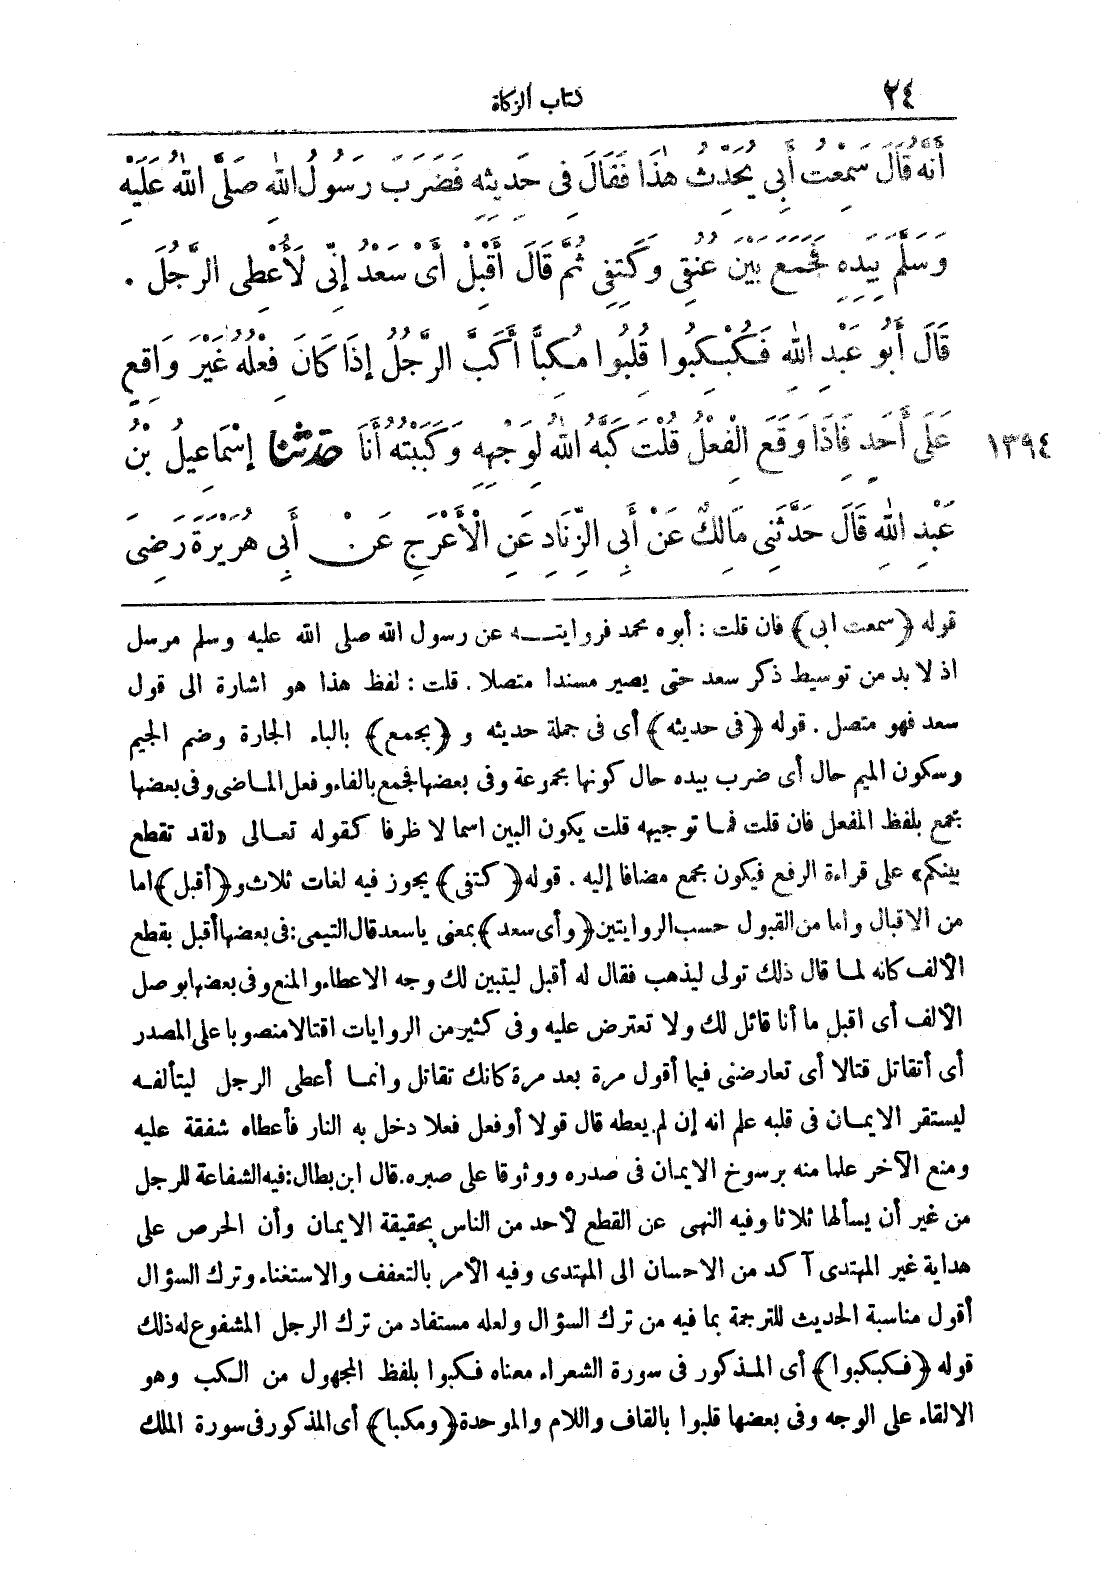 ٢٤
كتاب الزكاة
أَنَّهُ قَالَ سَمِعْتُ أَبِي يُحَدِّثُ هٰذَا فَقَالَ فِي حَدِيثِهِ فَضَرَبَ رَسُولُ اللّٰهِ صَلَّى اللّٰهُ عَلَيْهِ
وَسَلَّمَ بِيَدِهِ فَجَمَعَ بَيْنَ عُنُقِي وَكَتِفِي ثُمَّ قَالَ أَقْبِلْ أَىْ سَعْدُ إِنِّي لَأُعْطِى الرَّجُلَ .
قَالَ أَبُو عَبْدِ اللّٰهِ فَكُبْكِبُوا قُلِبُوا مُكِبًّا أَكَبَّ الرَّجُلُ إِذَا كَانَ فِعْلُهُ غَيْرَ وَاقِعٍ
عَلَى أَحَدٍ فَإِذَا وَقَعَ الْفِعْلُ قُلْتَ كَبَّهُ اللّٰهُ لِوَجْهِهِ وَكَبَبْتُهُ أَنَا حدثنا إِسْمَاعِيلُ بْنُ
١٣٩٤
عَبْدِ اللّٰهِ قَالَ حَدَّثَنِي مَالِكٌ عَنْ أَبِي الزِّنَادِ عَنِ الْأَعْرَجِ عَنْ أَبِي هُرَيْرَةَ رَضِيَ
قوله ﴿سمعت ابى﴾ فان قلت : أبوه محمد فروايتـــه عن رسول الله صلى الله عليه وسلم مرسل
اذ لا بد من توسيط ذكر سعد حتى يصير مسندا متصلا . قلت : لفظ هذا هو اشارة الى قول
سعد فهو متصل . قوله ﴿فى حديثه﴾ أى فى جملة حديثه و ﴿بجمع﴾ بالباء الجارة وضم الجيم
وسكون الميم حال أى ضرب بيده حال كونها مجموعة وفى بعضها فجمع بالفاء وفعل الماضى وفى بعضها
مجمع بلفظ المفعل فان قلت فما توجيهه قلت يكون البين اسما لا ظرفا كقوله تعالى «لقد تقطع
بينكم» على قراءة الرفع فيكون مجمع مضافا إليه . قوله ﴿كتفى﴾ يجوز فيه لغات ثلاث و﴿أقبل﴾ اما
من الاقبال واما من القبول حسب الروايتين ﴿وأى سعد﴾ بمعنى يا سعد قال التيمى : فى بعضها أقبل بقطع
الألف كانه لما قال ذلك تولى ليذهب فقال له أقبل ليتبين لك وجه الاعطاء والمنع وفى بعضها بوصل
الألف أى اقبل ما أنا قائل لك ولا تعترض عليه وفى كثير من الروايات اقتالا منصوبا على المصدر
أى أتقاتل قتالا أى تعارضنى فيما أقول مرة بعد مرة كانك تقاتل وانما أعطى الرجل ليتألفه
ليستقر الايمان فى قلبه علم انه إن لم يعطه قال قولا أو فعل فعلا دخل به النار فأعطاه شفقة عليه
ومنع الآخر علما منه برسوخ الايمان فى صدره ووثوقا على صبره . قال ابن بطال : فيه الشفاعة للرجل
من غير أن يسألها ثلاثا وفيه النهى عن القطع لأحد من الناس بحقيقة الايمان وأن الحرص على
هداية غير المهتدى آكد من الاحسان الى المهتدى وفيه الأمر بالتعفف والاستغناء وترك السؤال
أقول مناسبة الحديث للترجمة بما فيه من ترك السؤال ولعله مستفاد من ترك الرجل المشفوع له ذلك
قوله ﴿فكبكبوا﴾ أى المذكور فى سورة الشعراء معناه فكبوا بلفظ المجهول من الكب وهو
الالقاء على الوجه وفى بعضها قلبوا بالقاف واللام والموحدة ﴿ومكبا﴾ أى المذكور فى سورة الملك